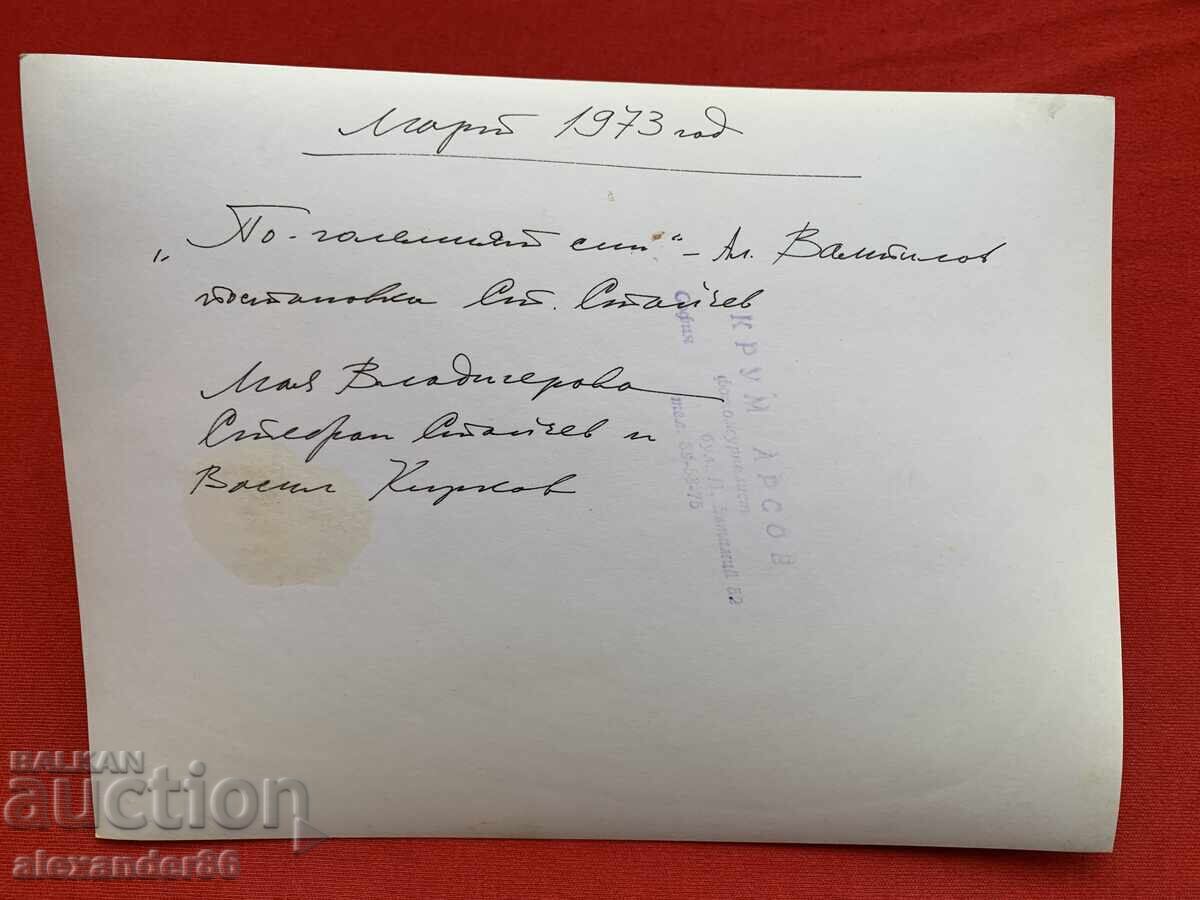 Март 1973 год
„По-големият син" - Ал. Вампилов
постановка Ст. Стайчев
Мая Владигерова
Стефан Стайчев и
Васил Кирков
КРУМ АРСОВ
фотожурналист
бул. П.
София тел.
BALKAN
auction
alexander86